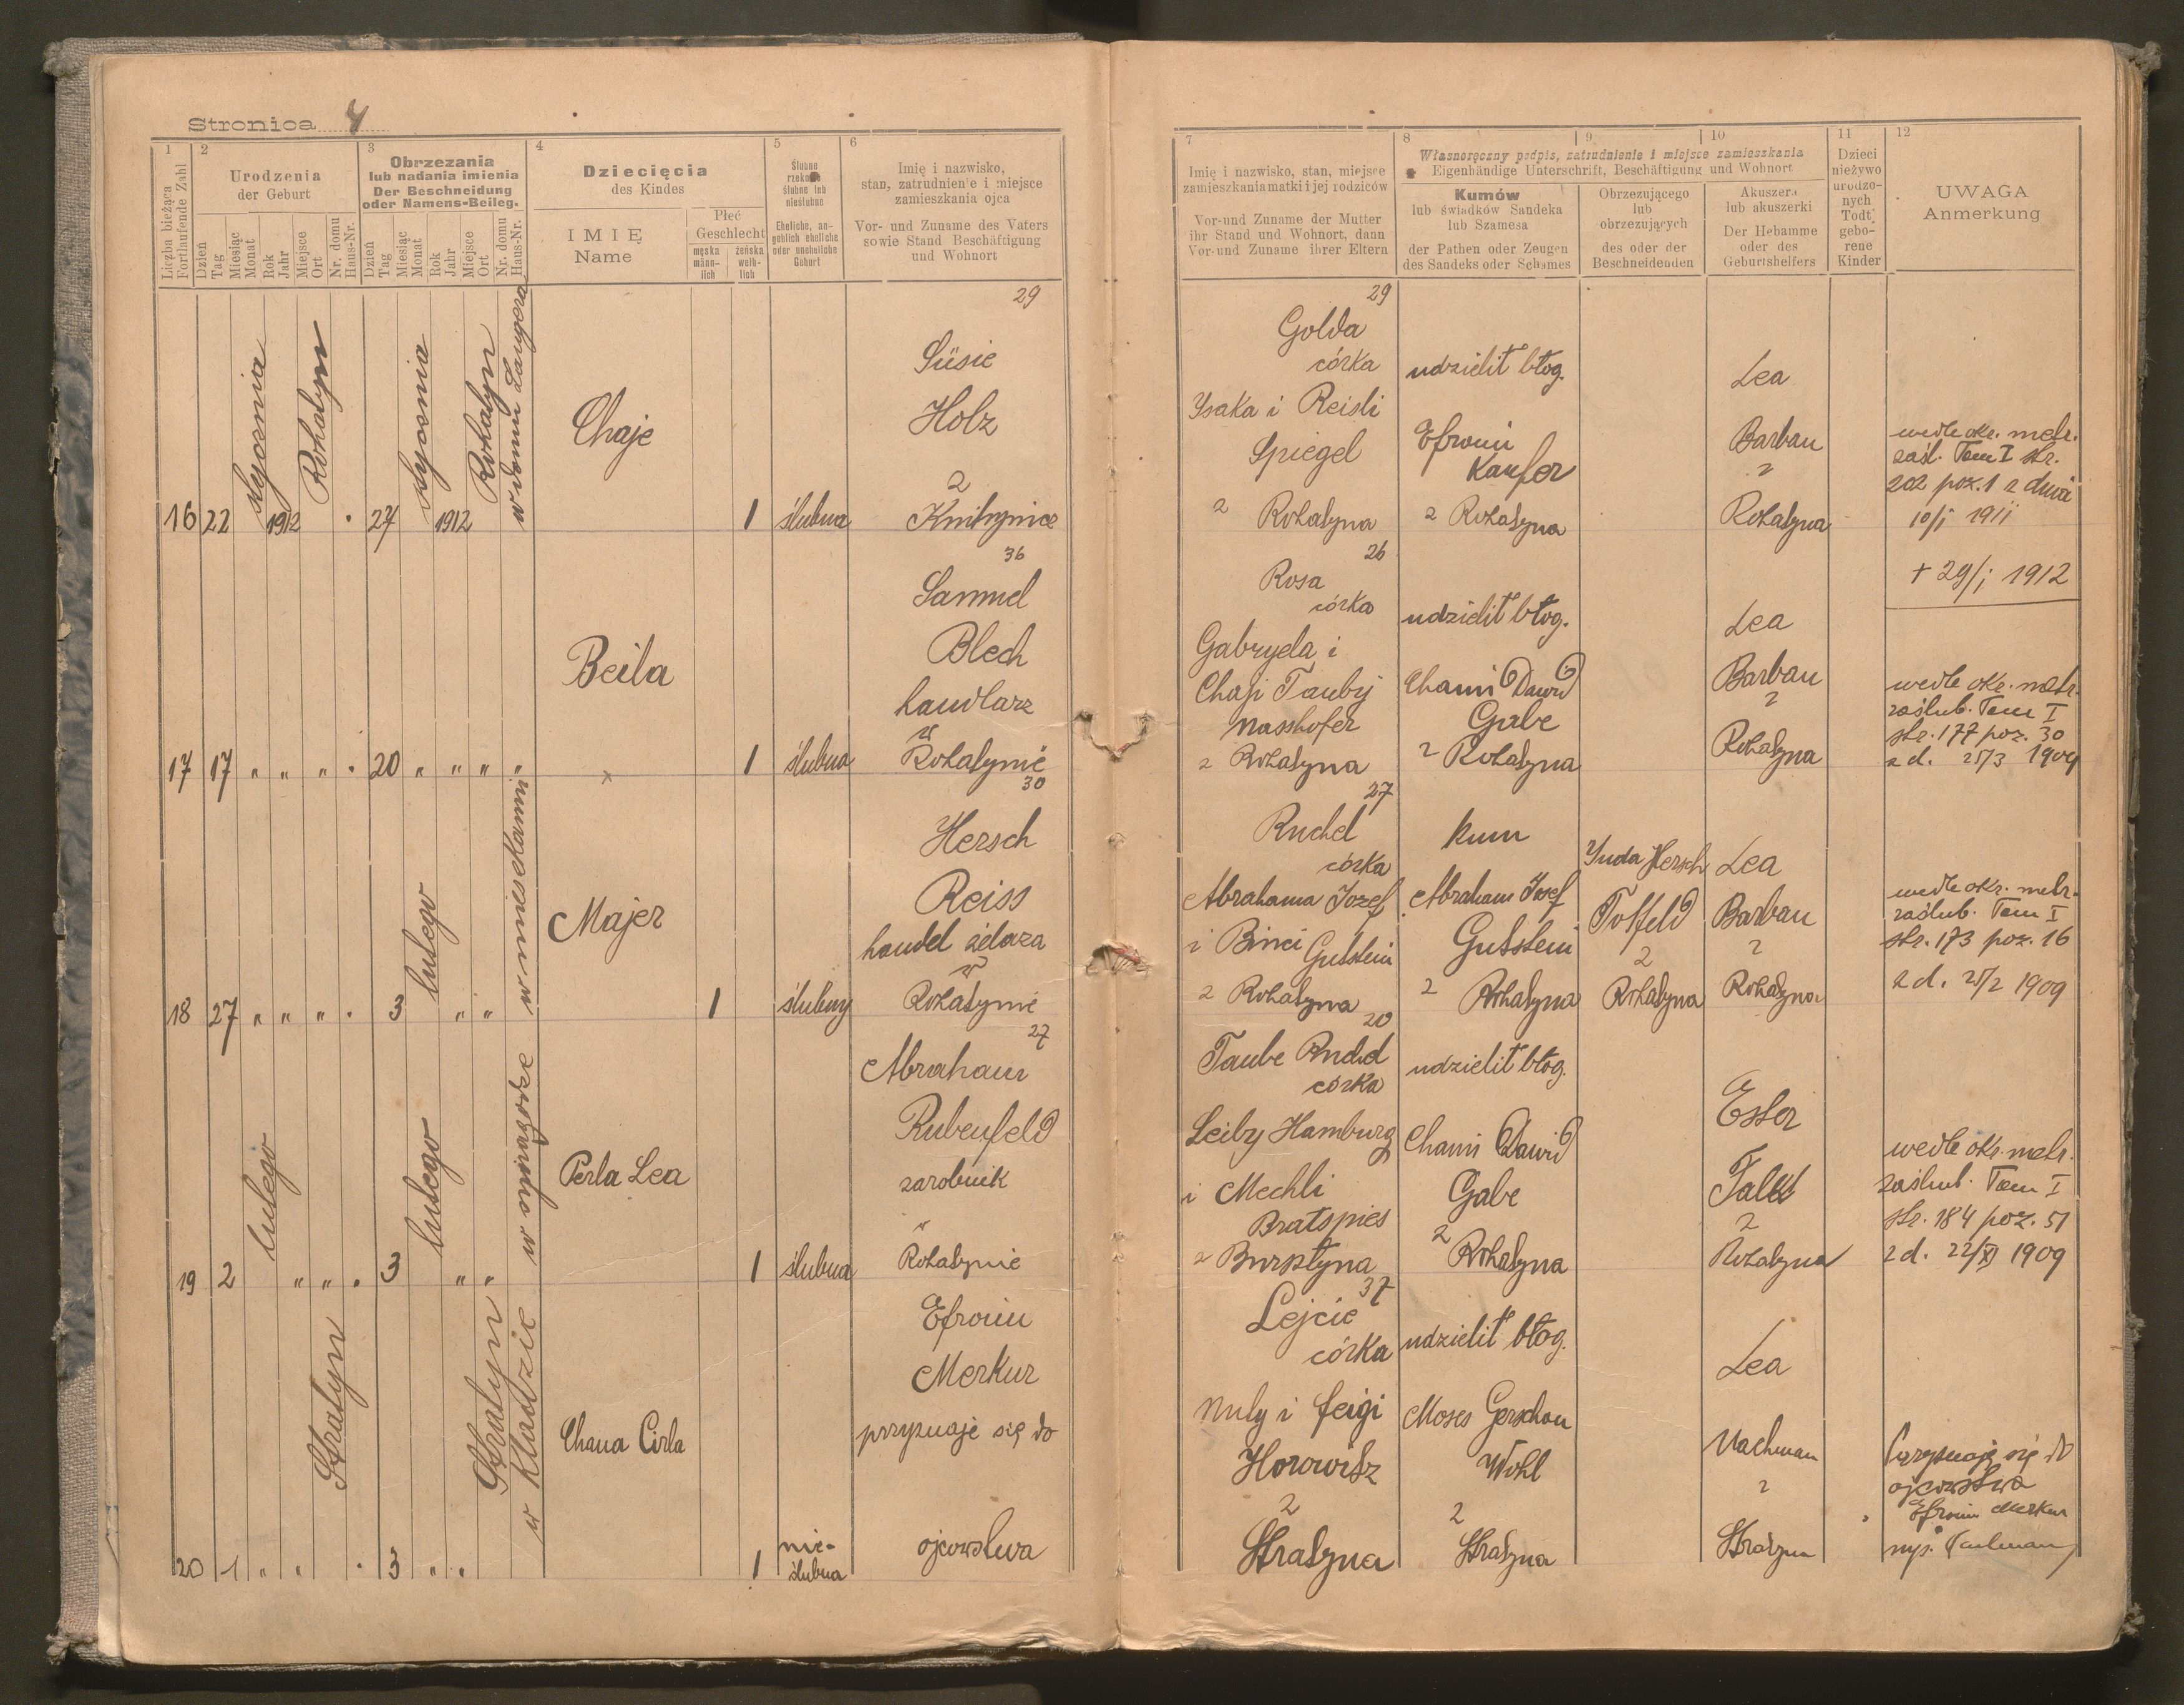 Stronica 4
1
Liczba bieżąca
Fortlaufende Zahl
2
Urodzenia
der Geburt
Dzień
Tag
Miesiąc
Monat
Rok
Jahr
Miejsce
Ort
Nr. domu
Haus-Nr.
3
Obrzezania
lub nadania imienia
Der Beschneidung
oder Namens-Beileg.
Dzień
Tag
Miesiąc
Monat
Rok
Jahr
Miejsce
Ort
Nr. domu
Haus-Nr.
4
Dziecięcia
des Kindes
IMIĘ
Name
Płeć
Geschlecht
męska
männ-
lich
żeńska
weib-
lich
5
Ślubne
rzekome
ślubne lub
nieślubne
Eheliche, an-
geblich eheliche
oder uneheliche
Geburt
6
Imię i nazwisko,
stan, zatrudnienie i miejsce
zamieszkania ojca
Vor- und Zuname des Vaters
sowie Stand Beschäftigung
und Wohnort
7
Imię i nazwisko, stan, miejsce
zamieszkania matki i jej rodziców
Vor-und Zuname der Mutter
ihr Stand und Wohnort, dann
Vor-und Zuname ihrer Eltern
8
9
10
Własnoręczny podpis, zatrudnienie i miejsce zamieszkania
Eigenhändige Unterschrift, Beschäftigung und Wohnort
Kumów
lub świadków Sandeka
lub Szamesa
der Pathen oder Zeugen
des Sandeks oder Schames
Obrzezującego
lub
obrzezujących
des oder der
Beschneidenden
Akuszera
lub akuszerki
Der Hebamme
oder des
Geburtshelfers
11
Dzieci
nieżywo
urodzo-
nych
Todt
gebo-
rene
Kinder
12
UWAGA
Anmerkung
16
22
stycznia
1912
Rohatyn
27
stycznia
1912
Rohatyn
w domu Langera
Chaje
1
ślubna
29
Süsie
Holz
z
Knihynicz
29
Golda
córka
Ysaka i Reisli
Spiegel
z Rohatyna
udzielił błog.
Efroim
Kaufer
z Rohatyna
Lea
Barban
z
Rohatyna
wedle okr. metr.
zaśl. Tom I str.
202 poz. 1 z dnia
10/i 1911
+ 29/i 1912
17
17
" " " "
20
" " " "
Beila
x
1
ślubna
36
Samuel
Blech
handlarz
w
Rohatynie
26
Rosa
córka
Gabryela i
Chaji Tauby
Nasshofer
z Rohatyna
udzielił błog.
Chaim Dawid
Gabe
z Rohatyna
Lea
Barban
z
Rohatyna
wedle okr. metr.
zaślub. Tom I
str. 177 poz. 30
z d. 25/3 1909
18
27
" " " "
3
lutego
" "
w mieszkaniu
Majer
1
ślubny
30
Hersch
Reiss
handel żelaza
w
Rohatynie
27
Ruchel
córka
Abrahama Jozef
i Binci Gutstein
z Rohatyna
kum
Abraham Josef
Gutstein
z Rohatyna
Yuda Hersch
Toffeld
z
Rohatyna
Lea
Barban
z
Rohatyna
wedle okr. metr.
zaślub. Tom I
str. 173 poz. 16
z d. 25/2 1909
19
2
lutego
" " "
3
lutego
" "
w synagodze
Perla Lea
1
ślubna
27
Abraham
Rubenfeld
zarobnik
w
Rohatynie
20
Taube Ruchel
córka
Leiby Hamburg
i Mechli
Bratspies
z Bursztyna
udzielił błog.
Chaim Dawid
Gabe
z
Rohatyna
Ester
Falek
z
Rohatyna
wedle okr. metr.
zaślub. Tom I
str. 184 poz. 51
z d. 22/XI 1909
20
1
" "
Stratyn
3
" "
Stratyn
w Kładzie
Chana Cirla
1
nie-
ślubna
Efroim
Merkur
przyznaje się do
ojcowstwa
37
Lejcie
córka
Nuty i Feigi
Horowitz
z
Stratyna
udzielił błog.
Moses Gerschon
Wohl
z
Stratyna
Lea
Nachman
z
Stratyna
Przyznaję się do
ojcowstwa
Efroim Merkur